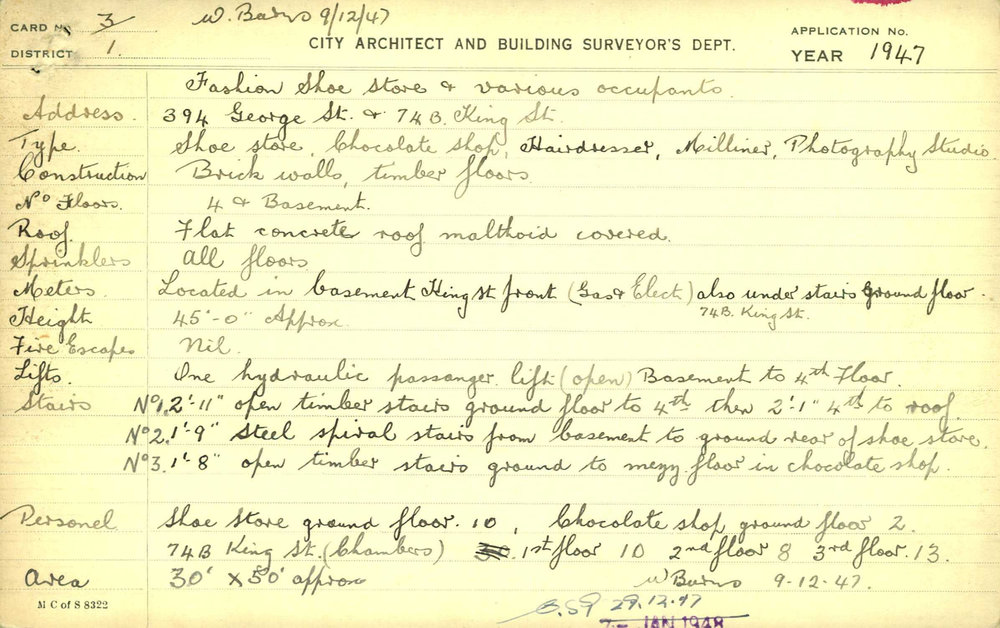 CARD No. 3 W. Burns 9/12/47
DISTRICT 1. CITY ARCHITECT AND BUILDING SURVEYOR'S DEPT.
APPLICATION No.
YEAR 1947
Fashion Shoe Store & various occupants.
Address. 394 George St. & 74B. King St.
Type. Shoe store, Chocolate shop, Hairdresser, Milliner, Photography Studio.
Construction Brick walls, timber floors.
No Floors. 4 & Basement.
Roof. Flat concrete roof malthoid covered.
Sprinklers All floors
Meters. Located in basement King St front (Gas & Elect) also under stairs Ground floor.
74B. King St.
Height 45'-0" Approx.
Fire Escapes Nil.
Lifts. One hydraulic passanger lift (open) Basement to 4th Floor.
Stairs No1. 2'-11" open timber stairs ground floor to 4th then 2'-1" 4th to roof.
No2. 1'-9" Steel spiral stairs from basement to ground rear of shoe store.
No3. 1'-8" open timber stairs ground to mezz floor in chocolate shop.
Personel Shoe Store ground floor. 10, Chocolate shop, ground floor 2.
74B King St. (Chambers) 1st floor 10 2nd floor 8 3rd floor. 13.
Area 30' x 50' approx W Burns 9-12-47.
M C of S 8322
29.12.47
7 - JAN 1948